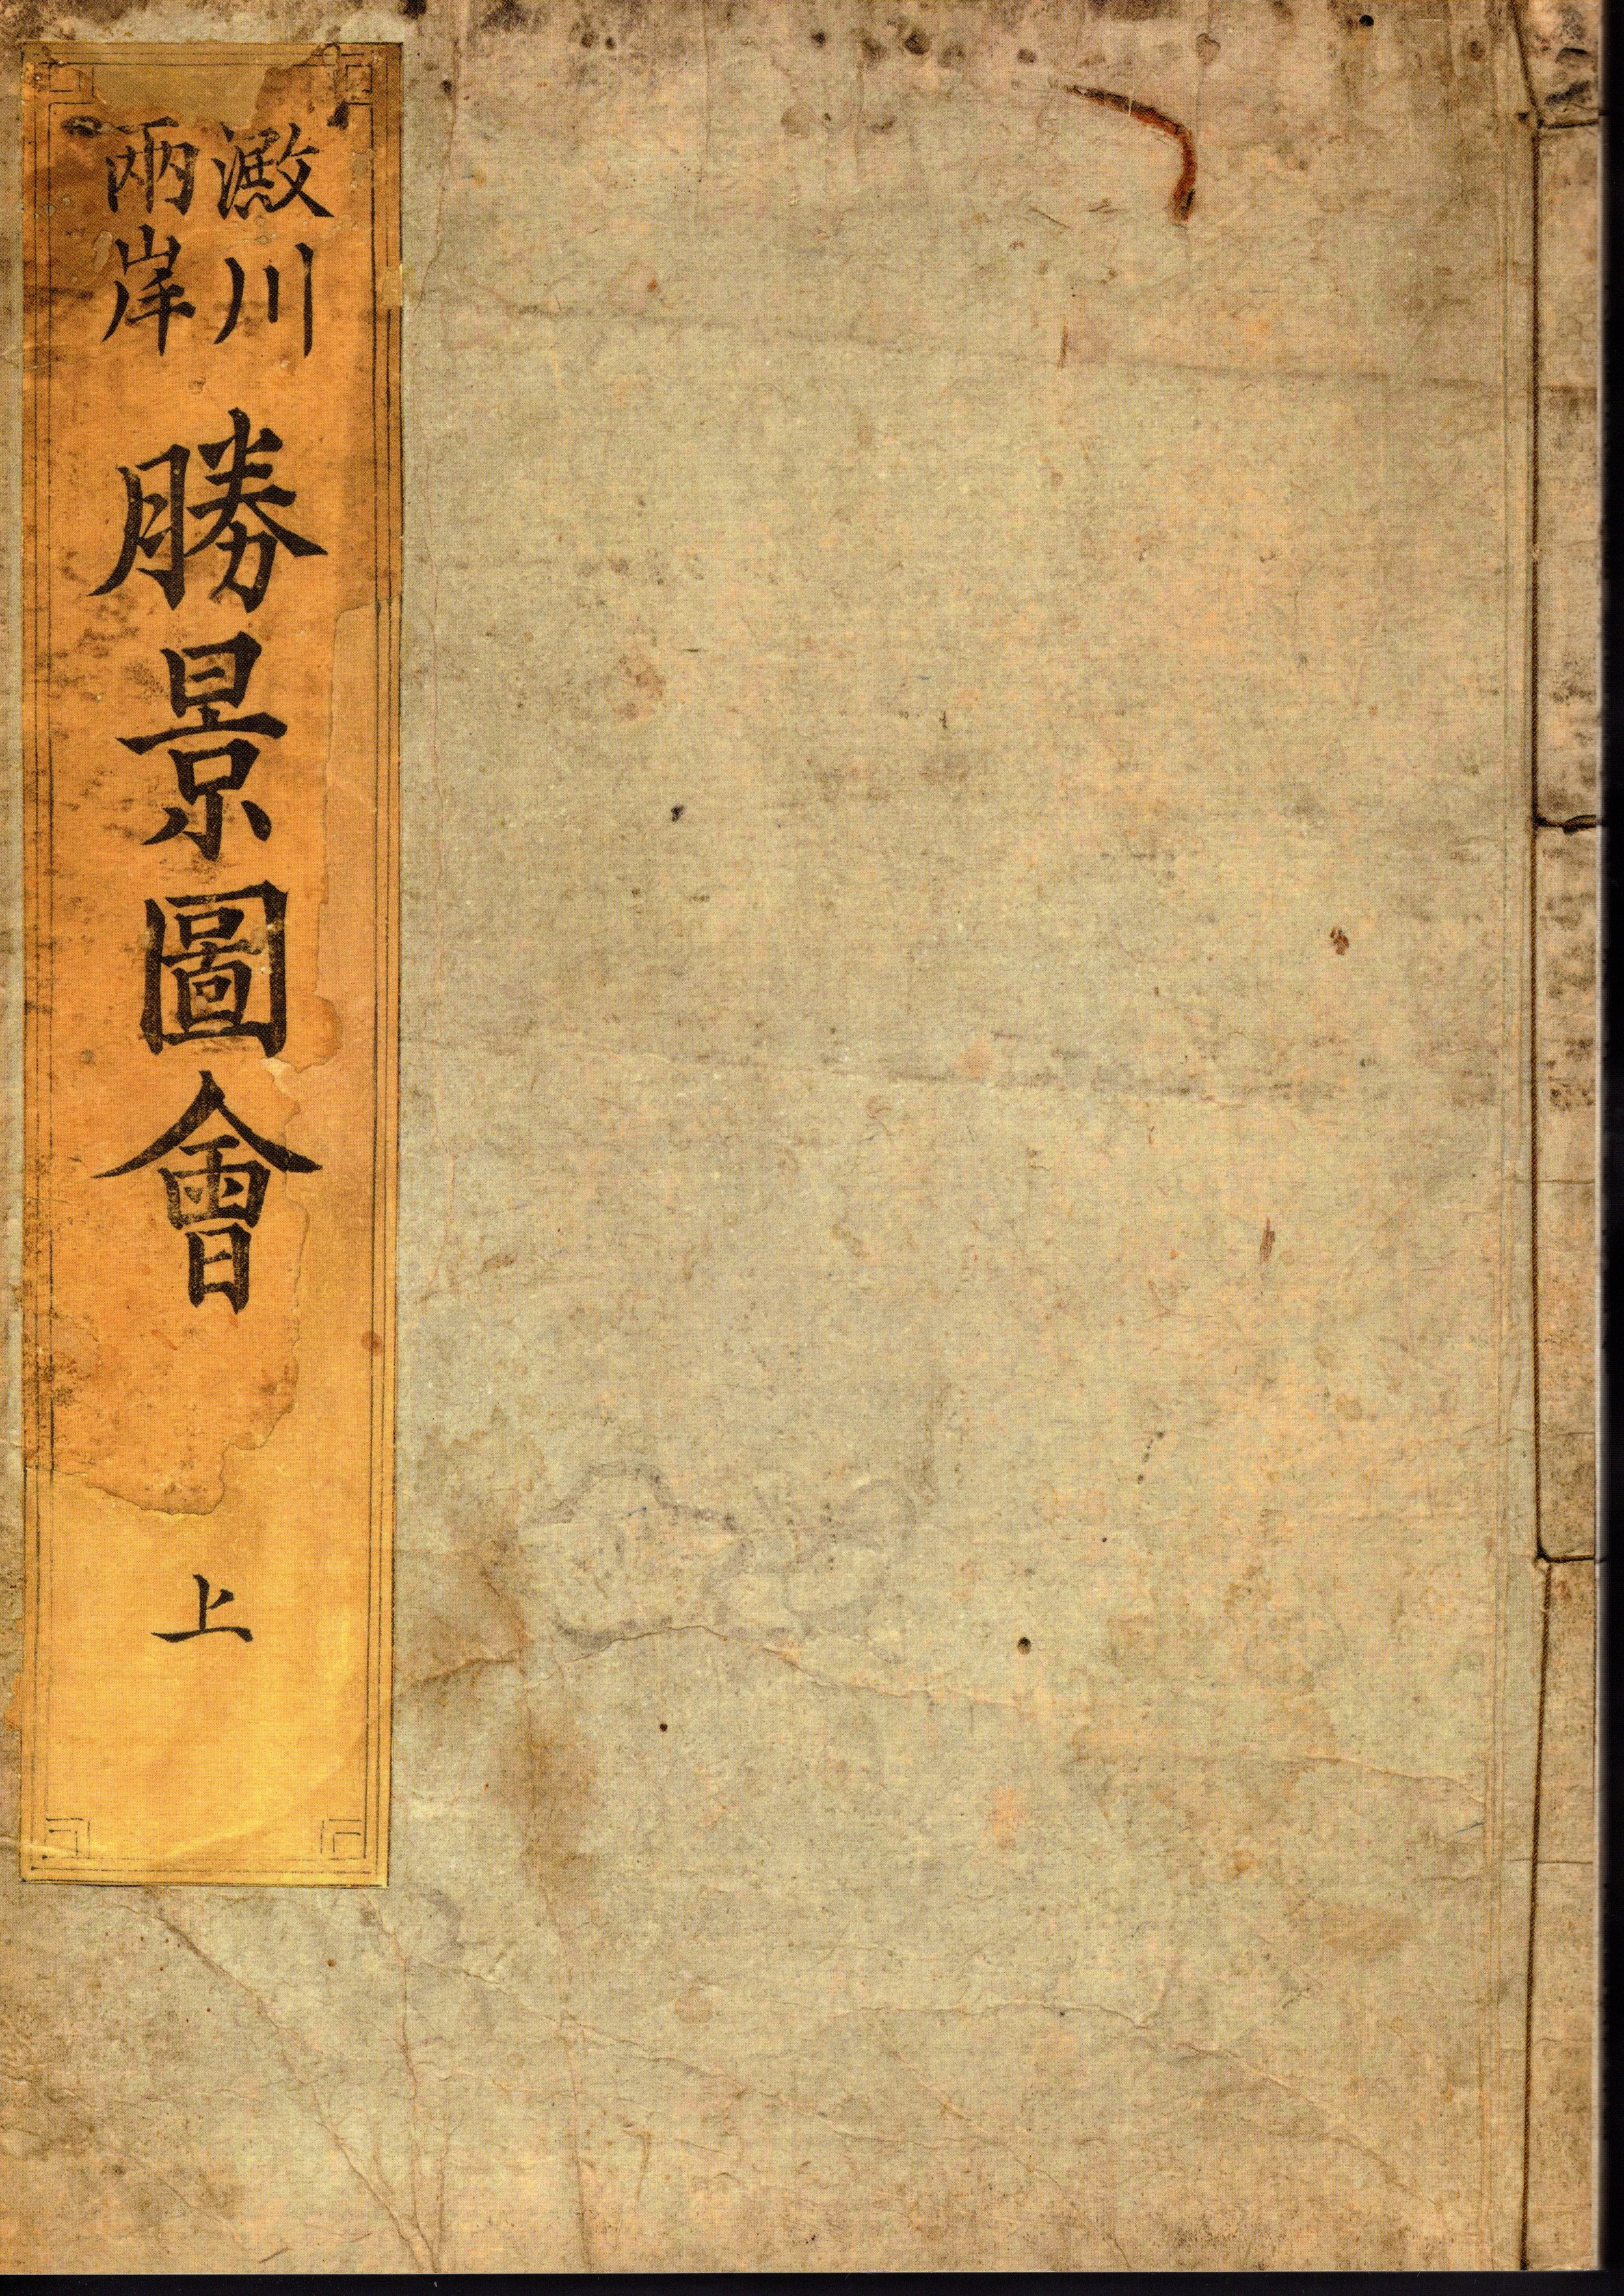 澱川
兩岸
勝景圖會
上